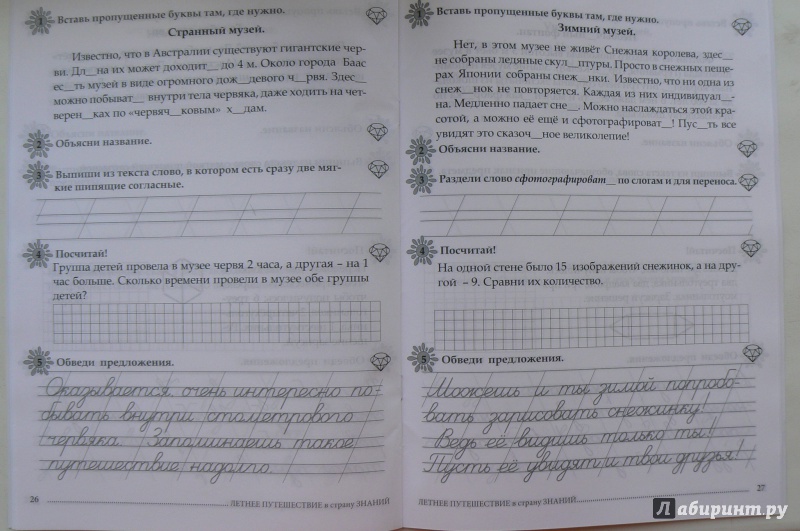 1 Вставь пропущенные буквы там, где нужно.
Странный музей.
Известно, что в Австралии существуют гигантские чер-
ви. Дл__на их может доходит__ до 4 м. Около города Баас
ес__ть музей в виде огромного дож__девого ч__рвя. Здес__
можно побыват__ внутри тела червяка, даже ходить на чет-
верен__ках по «червяч__ковым» х__дам.
2 Объясни название.
3 Выпиши из текста слово, в котором есть сразу две мяг-
кие шипящие согласные.
4 Посчитай!
Группа детей провела в музее червя 2 часа, а другая – на 1
час больше. Сколько времени провели в музее обе группы
детей?
5 Обведи предложения.
Оказывается, очень интересно по-
бывать внутри стометрового
червяка. Запоминаешь такое
путешествие надолго.
26
ЛЕТНЕЕ ПУТЕШЕСТВИЕ в страну ЗНАНИЙ
1 Вставь пропущенные буквы там, где нужно.
Зимний музей.
Нет, в этом музее не живёт Снежная королева, здес__
не собраны ледяные скул__птуры. Просто в снежных пеще-
рах Японии собраны снеж__нки. Известно, что ни одна из
снеж__нок не повторяется. Каждая из них индивидуал__-
на. Медленно падает сне__. Можно наслаждаться этой кра-
сотой, а можно её ещё и сфотографироват__! Пус__ть все
увидят это сказоч__ное великолепие!
2 Объясни название.
3 Раздели слово сфотографироват__ по слогам и для переноса.
4 Посчитай!
На одной стене было 15 изображений снежинок, а на дру-
гой – 9. Сравни их количество.
5 Обведи предложения.
Можешь и ты зимой попробо-
вать зарисовать снежинку!
Ведь её видишь только ты!
Пусть её увидят и твои друзья!
ЛЕТНЕЕ ПУТЕШЕСТВИЕ в страну ЗНАНИЙ
27
Лабиринт.ру